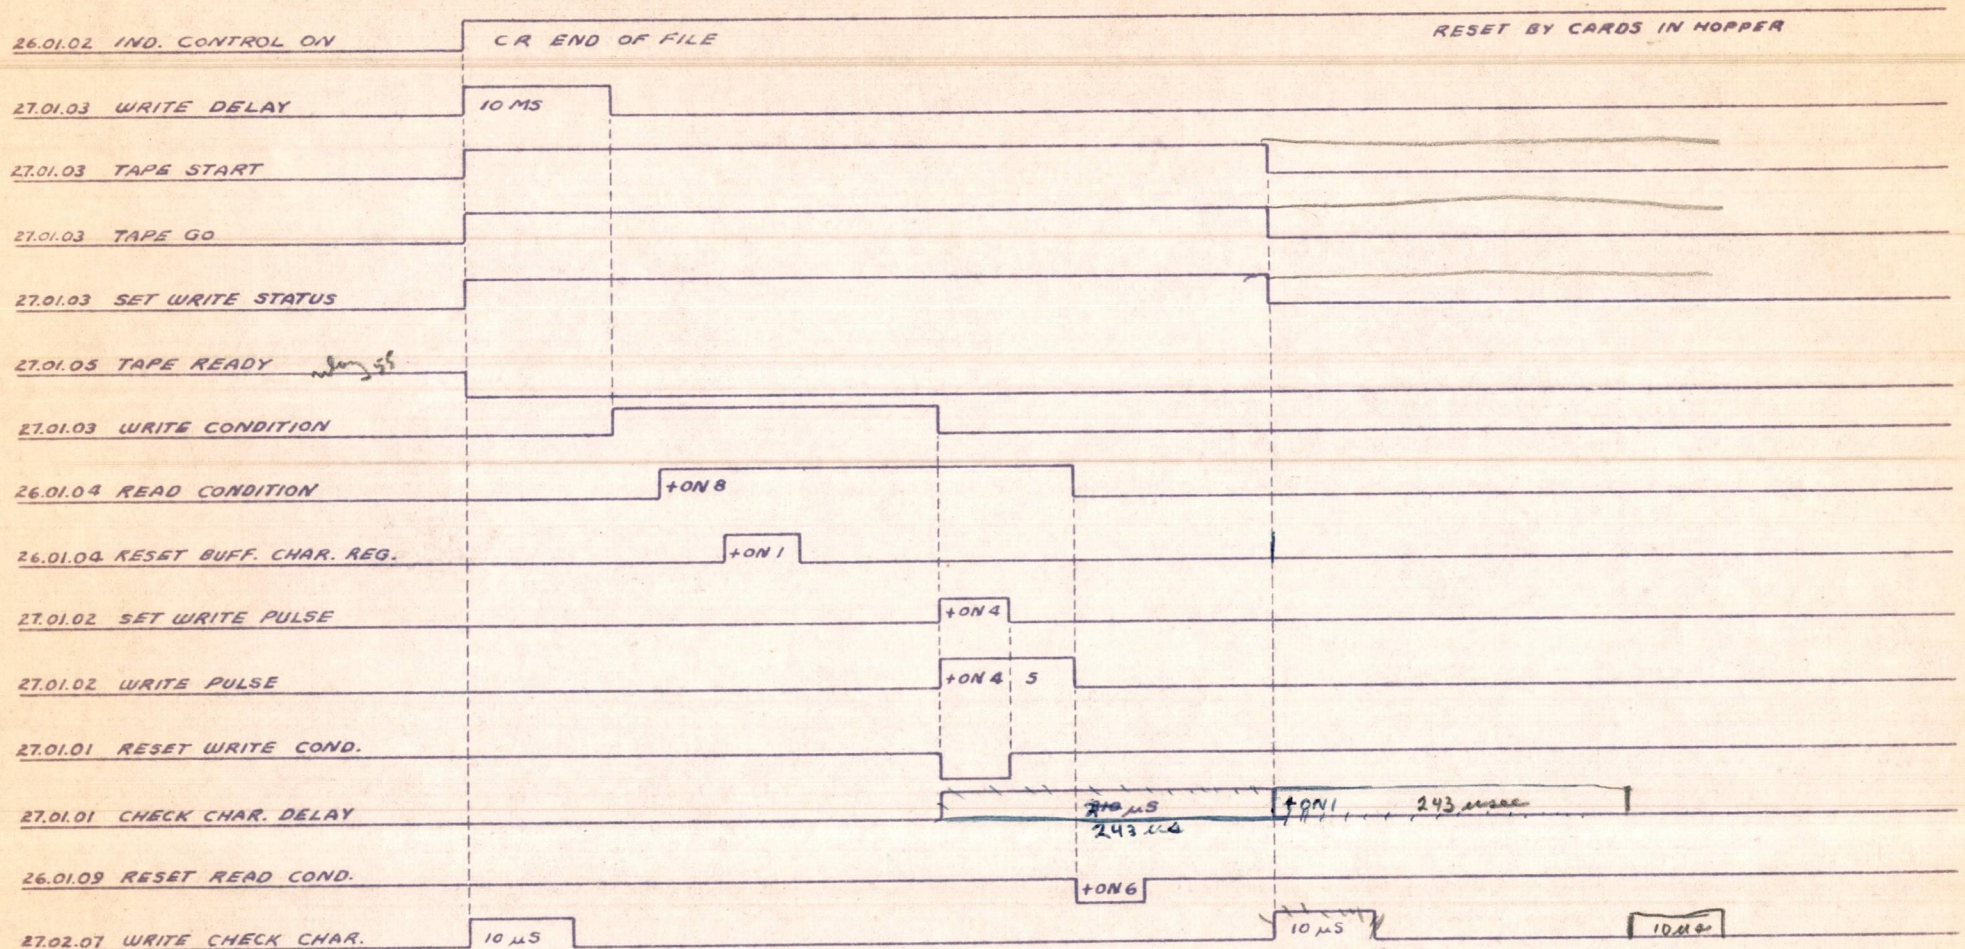 26.01.02 IND. CONTROL ON CR END OF FILE RESET BY CARDS IN HOPPER
27.01.03 WRITE DELAY 10 MS
27.01.03 TAPE START
27.01.03 TAPE GO
27.01.03 SET WRITE STATUS
27.01.05 TAPE READY
27.01.03 WRITE CONDITION
26.01.04 READ CONDITION +ON 8
26.01.04 RESET BUFF. CHAR. REG. +ON 1
27.01.02 SET WRITE PULSE +ON 4
27.01.02 WRITE PULSE +ON 4 5
27.01.01 RESET WRITE COND.
27.01.01 CHECK CHAR. DELAY µS +ON 1 243 usec
243 us
26.01.09 RESET READ COND. +ON 6
27.02.07 WRITE CHECK CHAR. 10 µS 10 µS 10 us